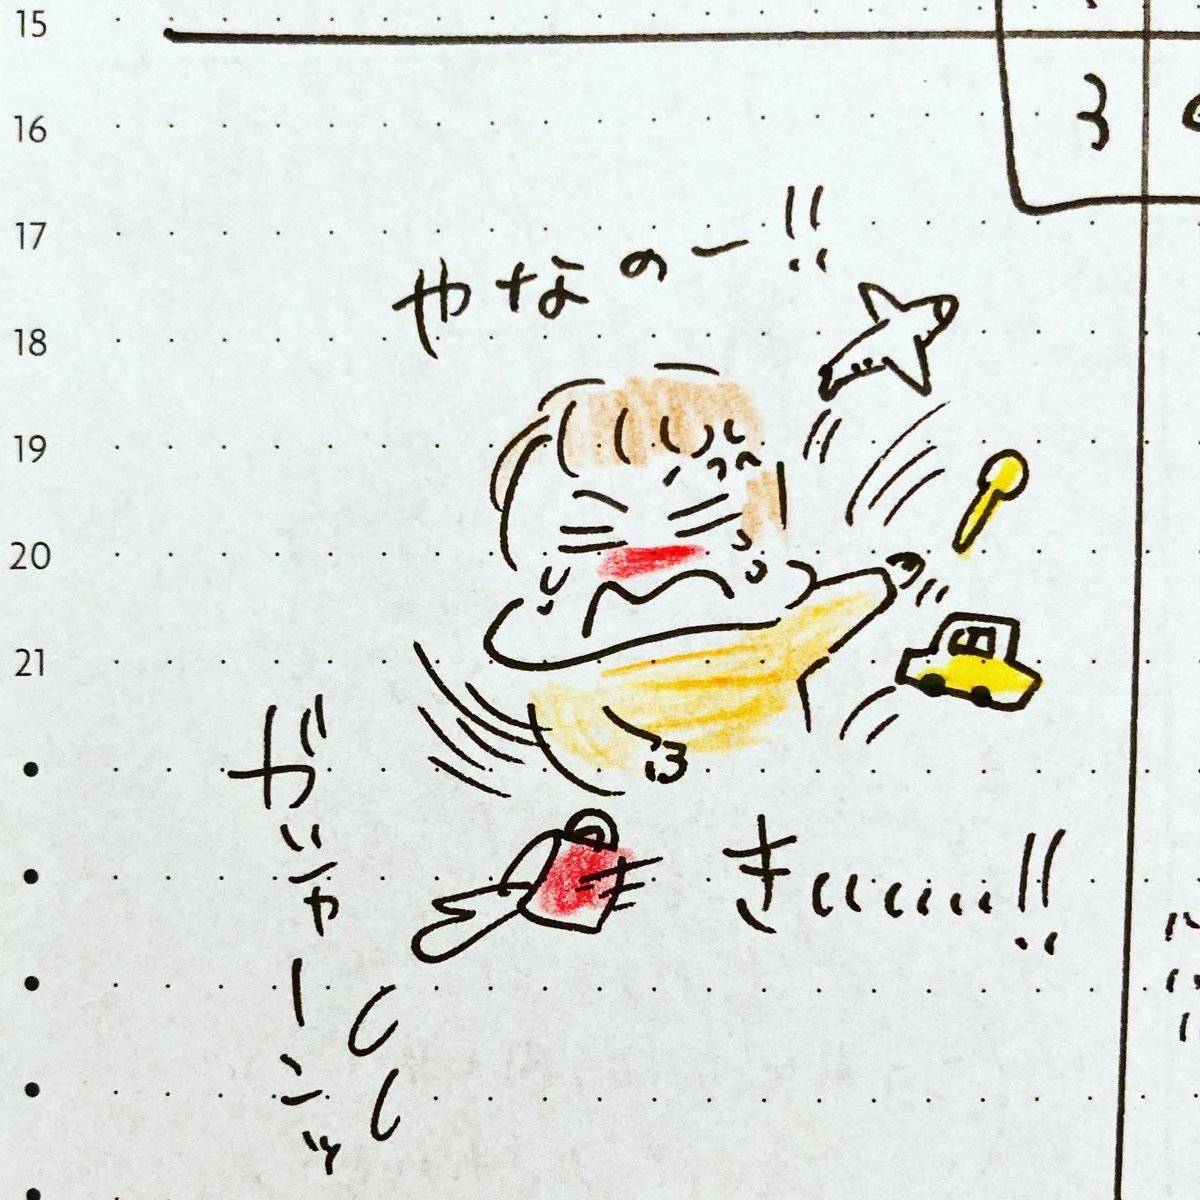 15
16
3
17
やなのー!!
18
19
20
21
ガシャーンッ
きぃぃぃぃ…!!